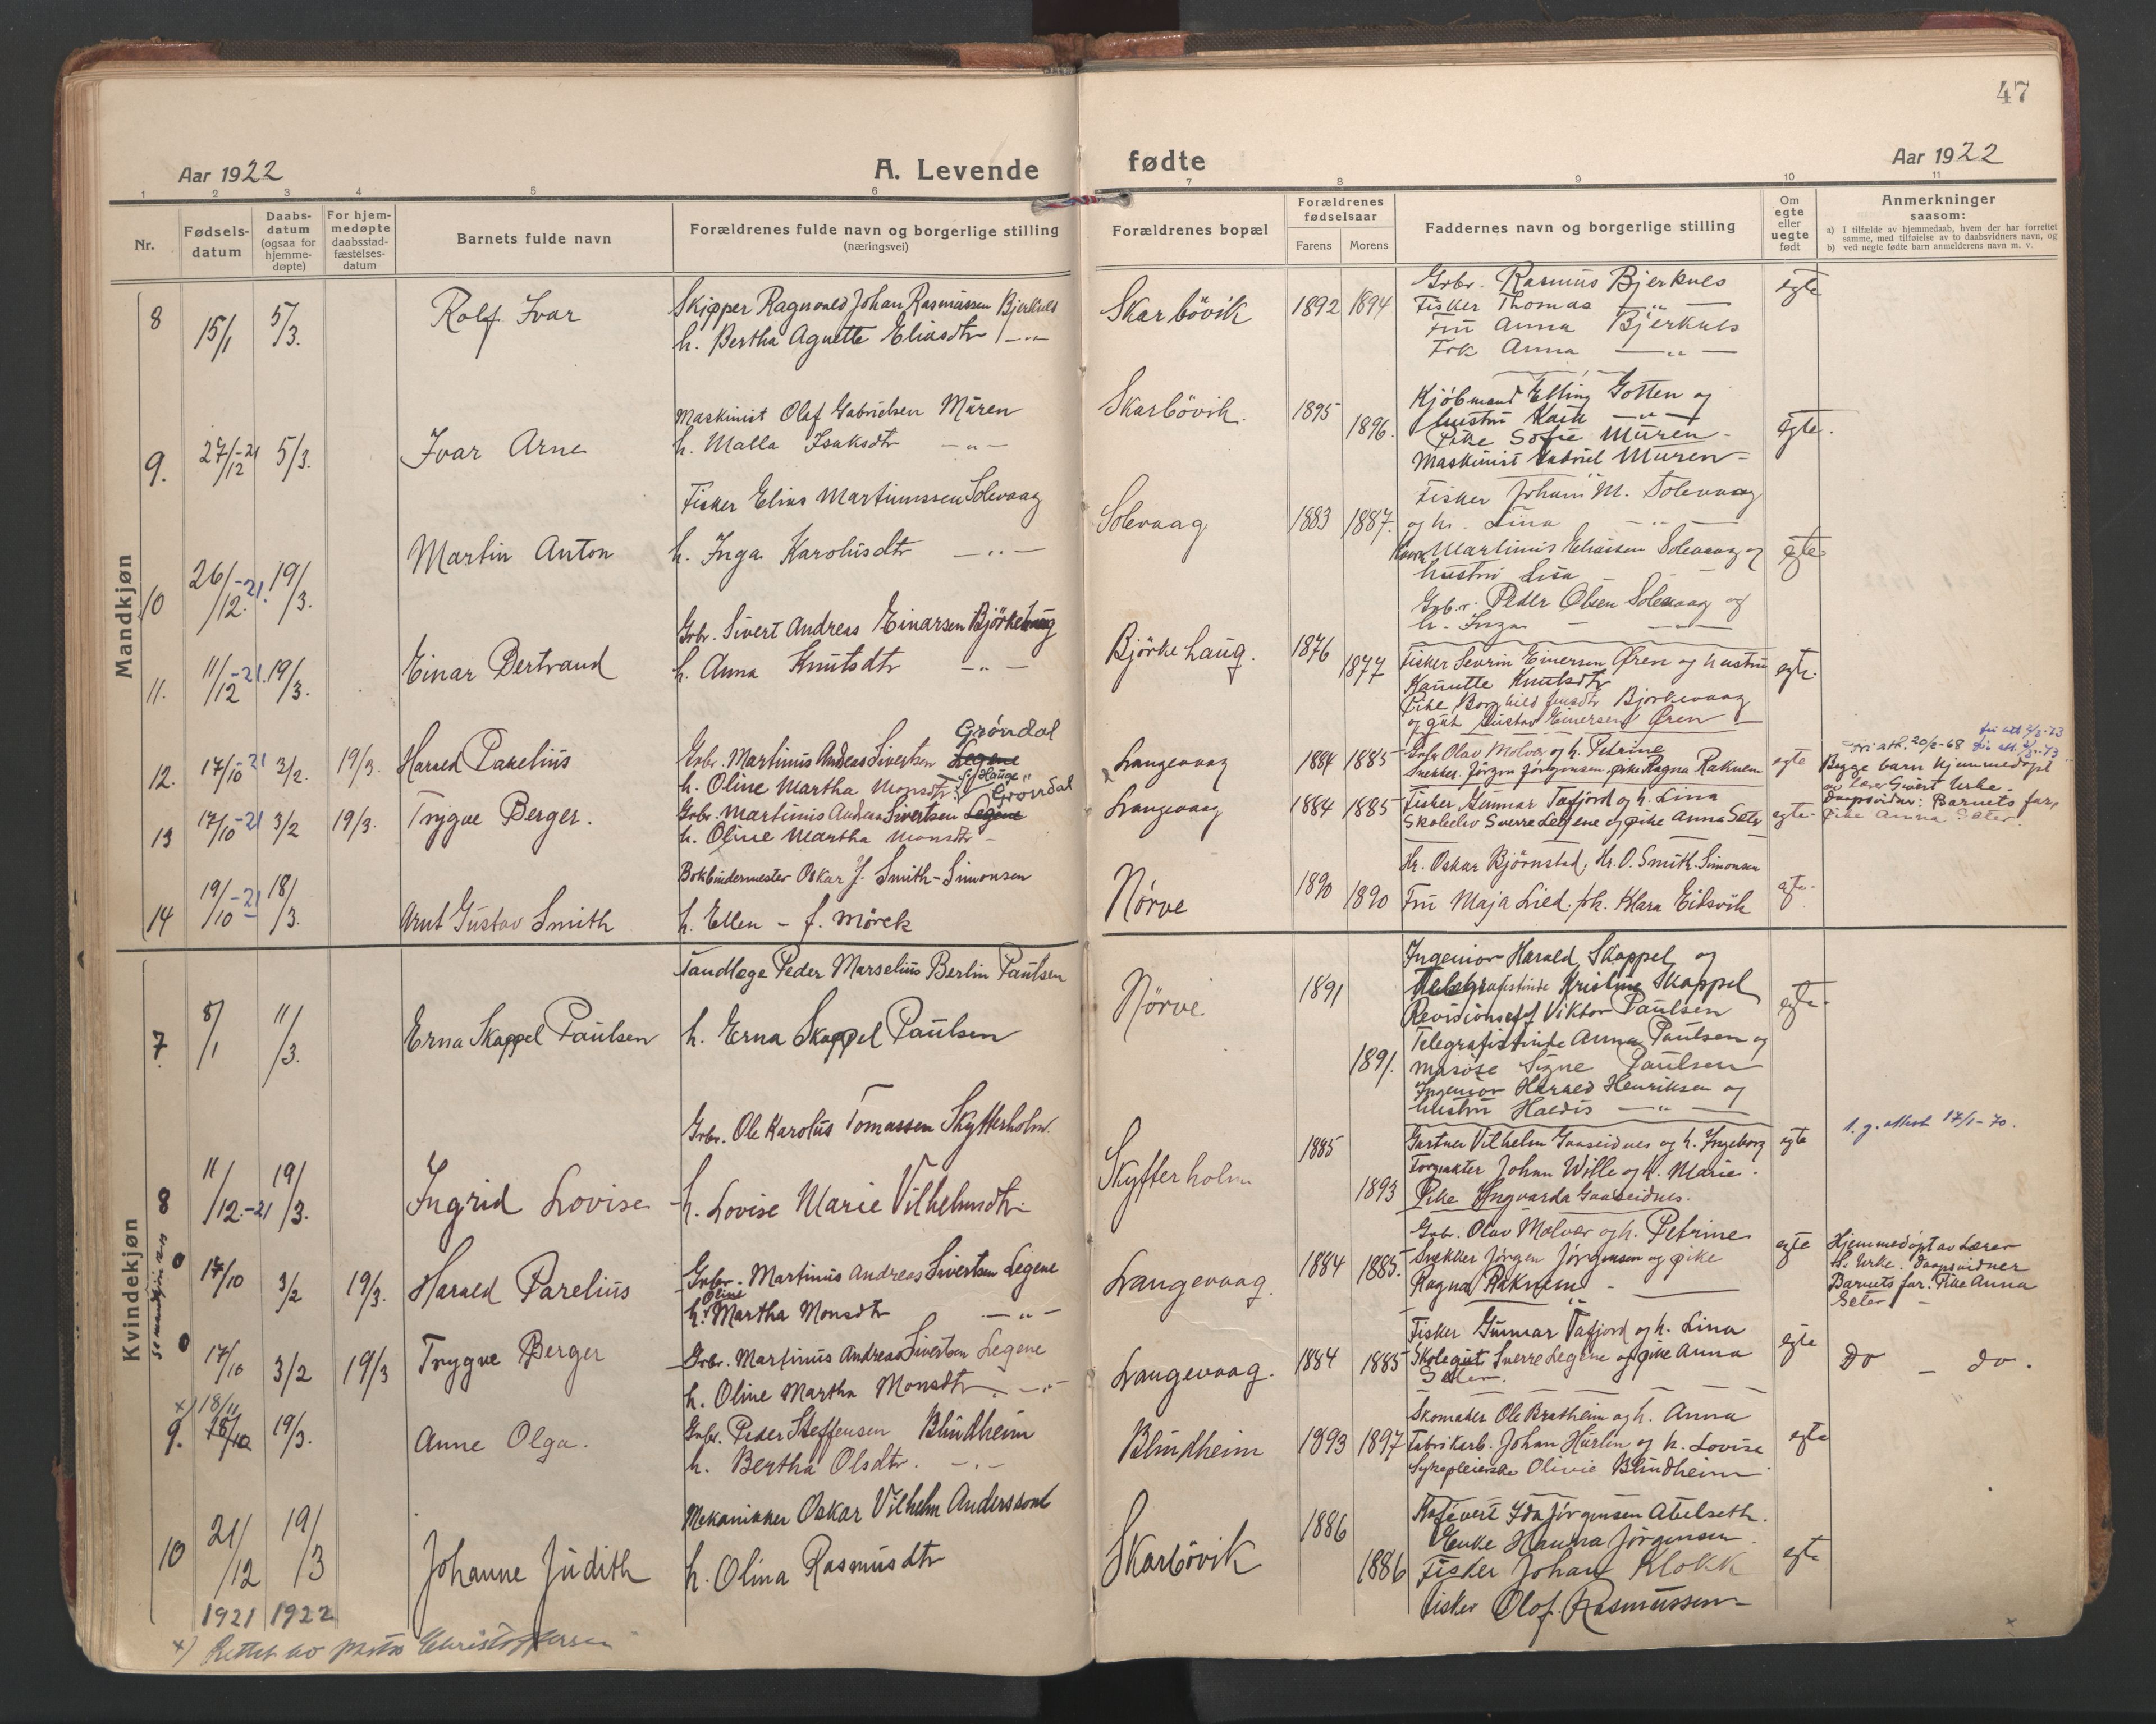 47
Aar 1922
A. Levende
fødte
Aar 1922
1 2 3 4 5 6 7 8 9 10 11
Nr.
Fødsels-
datum
Daabs-
datum
(ogsaa for
hjemme-
døpte)
For hjem-
medøpte
daabsstad-
fæstelses-
datum
Barnets fulde navn
Forældrenes fulde navn og borgerlige stilling
(næringsvei)
Forældrenes bopæl
Forældrenes
fødselsaar
Farens
Morens
Faddernes navn og borgerlige stilling
Om
egte
eller
uegte
født
Anmerkninger
saasom:
a) I tilfælde av hjemmedaab, hvem der har forrettet
samme, med tilføielse av to daabsvidners navn, og
b) ved uegte fødte barn anmelderens navn m. v.
Mandkjøn
8 15/1 5/3. Rolf Ivar
Skipper Ragnvald Johan Rasmussen Bjerknes
h. Bertha Agnette Eliasdtr —"—
Skarbövik 1892 1894
Grbr. Rasmus Bjerknes
Fisker Thomas —"—
Fru Anna Bjerknes
Frk Anna —"—
egte
9. 27/12-21 5/3. Ivar Arne
Maskinist Olaf Gabrielsen Müren
h. Malla Isaksdtr —"—
Skarbövik. 1895 1896.
Kjöbmand Elling Gotten og
hustru —"—
Pike Sofie Müren
Maskinist Gabriel Müren
egte.
10 26/12.-21. 19/3. Martin Anton
Fisker Elias Martinussen Solevaag
h. Inga Karolusdtr —"—
Solevaag 1883 1887.
Fisker Johan M. Solevaag
og h. Lina —"—
Martinus Eliassen Solevaag og
hustru Lisa
Grbr. Peder Olsen Solevaag og
h. Inga — —"—
egte
11. 11/12-21. 19/3. Einar Bertrand
Grbr. Sivert Andreas Einarsen Björkehaug
h. Anna Knutsdtr —"—
Björkehaug. 1876 1877
Fisker Sevrin Einersen Øren og hustru
Kanutte Knutsdtr
Pike Borghild Bjorkevaag
og gut Gustav Einersen Øren
egte.
12. 17/10-21 3/2. 19/3. Harald Parelius
Grøndal
Grbr. Martinus Andreas Sivertsen Legene
h. Oline Martha Monsdtr
Langevaag 1884 1885
Grbr Olav Molvær og h. Petrine
Snekker Jörgen Jörgensen, pike Ragna Raknem
egte
fri att. 20/2-68
Begge barn hjemmedøpt
av Lærer Sivert Urke.
Daapsvidner: Barnets far,
pike Anna Sæter.
13 17/10-21 3/2 19/3. Trygve Berger.
Grøndal
Grbr. Martinus Andreas Sivertsen Legene
h. Oline Martha Monsdtr —
Langevaag 1884 1885
Fisker Gunnar Tafjord og h. Lina
Skoleelev Sverre Legene og pike Anna Sæter
egte
14 19/10-21 18/3. Arnt Gustav Smith
Bokbindermester Oskar J. Smith-Simonsen
h. Ellen — f. Mörck
Nörve 1890 1890
Hr. Oskar Björnstad, Hr. O. Smith-Simonsen
Fru Maja Lied. frk. Klara Eiksvik
egte.
Kvindekjøn
7. 8/1 11/3. Erna Skappel Paulsen
Tandlæge Peder Marselius Berlin Paulsen
h. Erna Skappel Paulsen
Nörve. 1891 1891.
Ingeniör Harald Skappel og
Telegrafistinde Kristine Skappel
Revisionschef Viktor Paulsen
Telegrafistinde Anna Paulsen og
masöse Signe Paulsen
Ingeniör Harald Henriksen og
hustru Haldis —"—
egte.
8 11/12.-21 19/3. Ingrid Lovise
Grbr. Ole Karolus Tomassen Skytterholm.
h. Lovise Marie Vilhelmsdtr
Skytterholm 1885 1893
Gartner Vilhelm Gaaseidnes og h. Ingeborg
Johan Wille og h. Marie.
Pike Ingvarda Gaaseidnes.
egte
1. g. attest 17/1-70.
se mandkjøn
0 17/10 3/2 19/3. Harald Parelius
Grbr. Martinus Andreas Sivertsen Legene
h. Oline Martha Monsdtr —"—
Langevaag. 1884 1885.
Grbr. Olav Molvær og h. Petrine
Snekker Jörgen Jörgensen og pike
Ragna Raknem
egte
Hjemmedøpt av Lærer
S. Urke. Daapsvidner
Barnets far. Pike Anna
Sæter —
0 17/10 3/2 19/3 Trygve Berger
Grbr. Martinus Andreas Sivertsen Legene
h. Oline Martha Monsdtr. —"—
Langevaag. 1884 1885
Fisker Gunnar Tafjord og h. Lina
Skolegut Sverre Legene og pike Anna
Sæter.
egte
Do — do.
x) 18/11
9. 18/10 19/3. Anne Olga.
Grbr. Peder Steffensen Blindheim
h. Bertha Olsdtr. —"—
Blindheim 1893 1897
Skomaker Ole Bratheim og h. Anna
Fabrikarb. Johan Hurlen og h. Lovise
Sykepleierske Olivie Blindheim
egte
10 21/12 1921 19/3 1922 Johanne Judith
Mekaniker Oskar Vilhelm Anderssont
h. Olina Rasmusdtr
Skarbövik 1886 1886
Kafévert Ida Jørgensen Abelseth.
Enke Hanna Jørgensen.
Fisker Johan Klokk
Fisker Olof. Rasmussen
egte
x) Rettet av prest Christoffersen